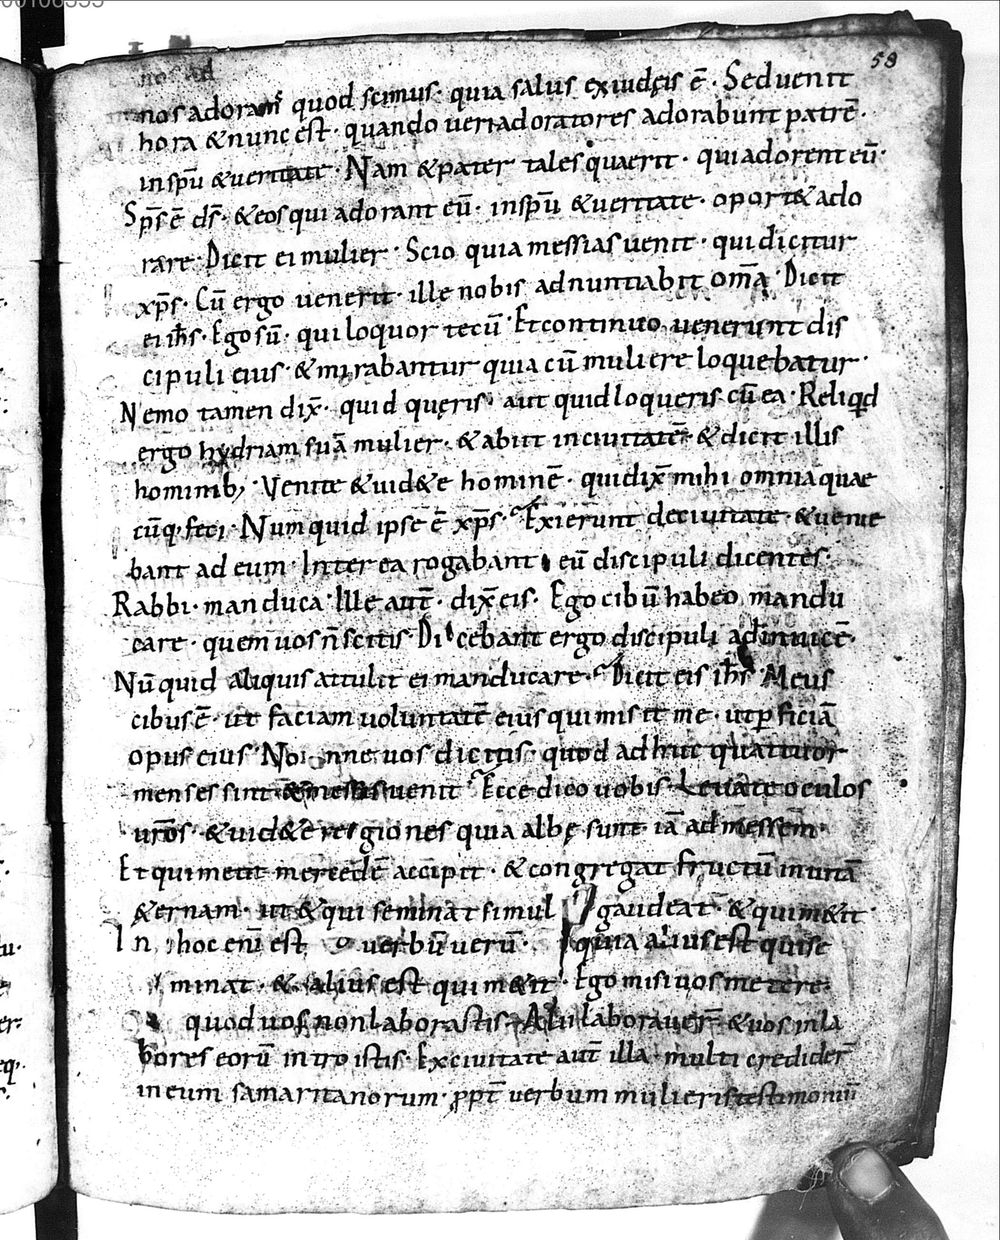 58
nos adoramus quod scimus· quia salus exiudęis ē· Sed uenit
hora & nunc est· quando ueri adoratores adorabunt patrē·
inspū & ueritate· Nam & pater tales quaerit· qui adorent eū·
Sps̄ ē ds̄· & eos qui adorant eū· inspū & ueritate· oport& ado
rare· Dicit ei mulier· Scio quia messias uenit· qui dicitur
xp̄s· Cū ergo uenerit· ille nobis adnuntiabit om̄a· Dicit
ei ih̄s· Ego sū· qui loquor tecū· Et continuo uenerunt dis
cipuli eius· & mirabantur quia cū muliere loquebatur·
Nemo tamen dix̄· quid queris· aut quid loqueris cū ea· Reliqd
ergo hydriam suā mulier· & abiit in ciuitatē· & dicit illis
hominib;· Venite & uid&e hominē· qui dix̄ mihi omnia quae
cūq· feci· Numquid ipse ē xp̄s· Exierunt deciuitate· & uenie
bant ad eum· Interea rogabant eū discipuli dicentes·
Rabbi· manduca· Ille aut̄· dix̄ eis· Ego cibū habeo mandu
care· quem uos n̄ scitis· Dicebant ergo discipuli adinuicē·
Nūquid aliquis attulit ei manducare· Dicit eis ih̄s· Meus
cibus ē· ut faciam uoluntatē eius qui misit me· ut pficiā
opus eius· Nonne uos dicitis· quod adhuc quattuor
menses sint & messis uenit· Ecce dico uobis· Leuate oculos
uros̄· & uid&e regiones quia albę sunt iā ad messem·
Et qui metit mercedē accipit· & congregat fructū inuitā
&ernam· ut & qui seminat simul gaudeat· & qui m&it·
In hoc eni est uerbū uerū· quia alius est qui se
minat· & alius est qui m&it· Ego misi uos metere·
quod uos non laborastis· Alii laborauer̄· & uos inla
bores eorū introistis· Exciuitate aut̄ illa multi credider̄
in eum samaritanorum· ppt̄ uerbum mulieris testimoniū